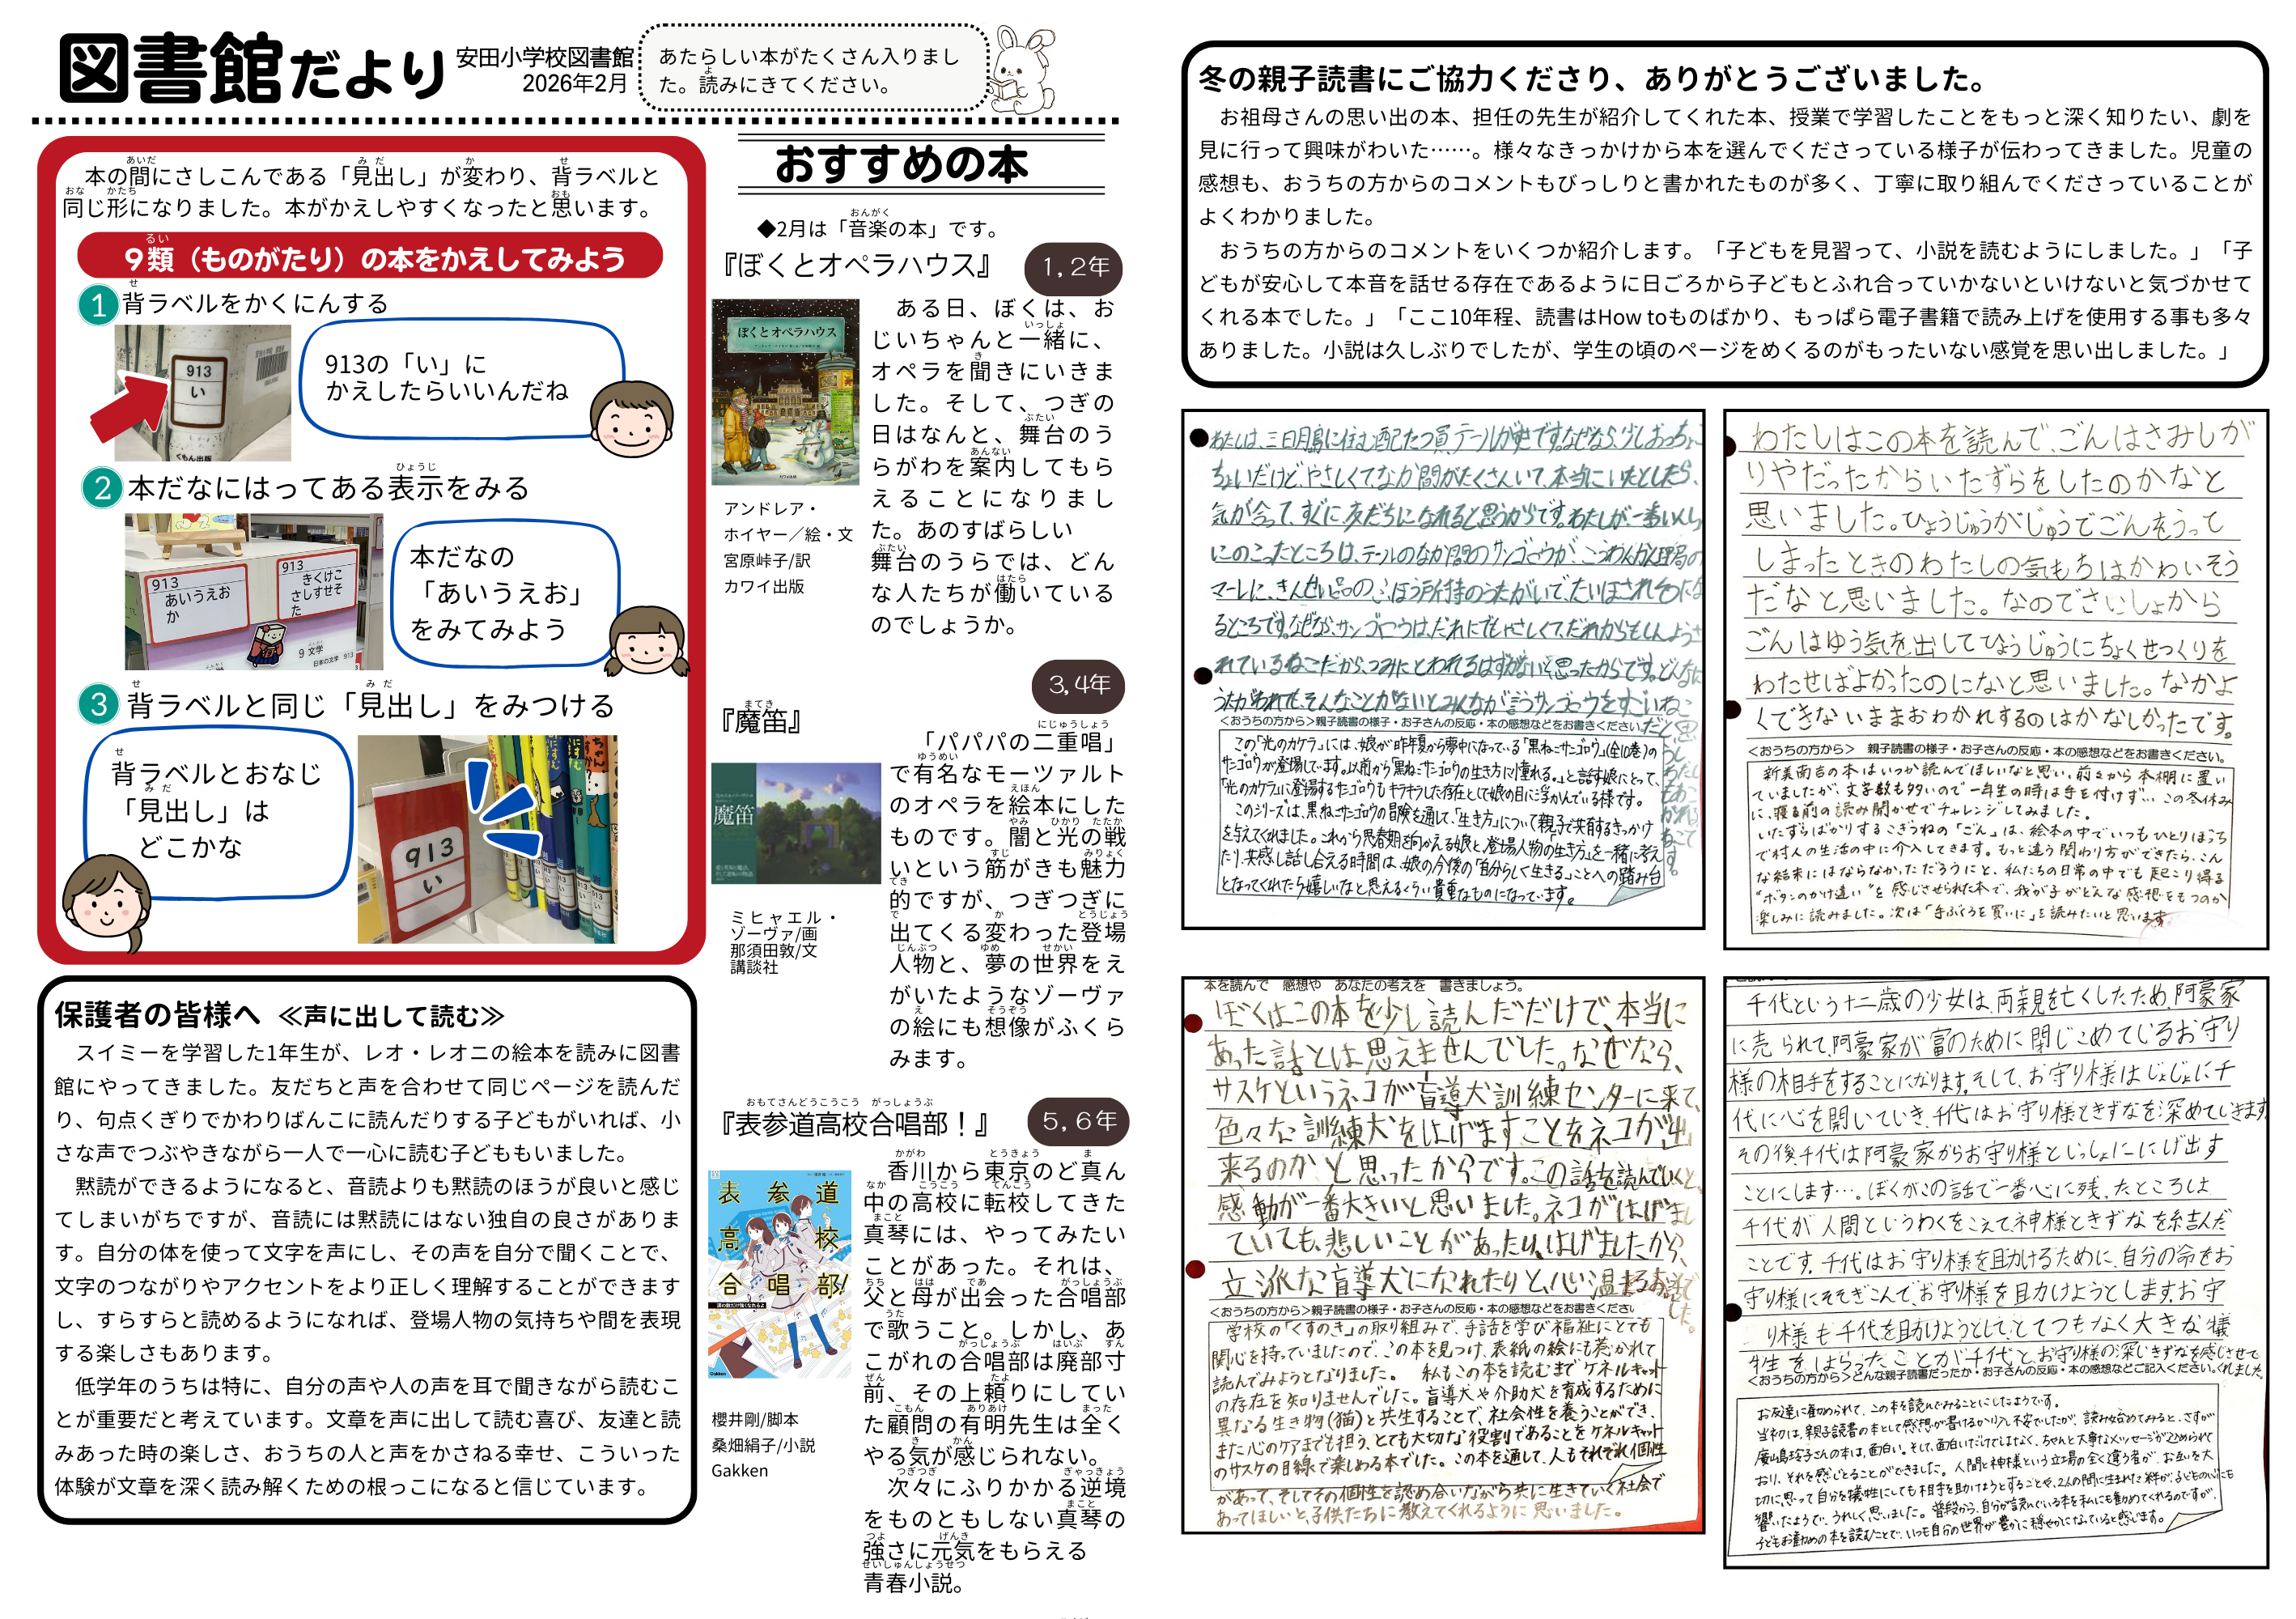 図書館だより
安田小学校図書館
2026年2月
あたらしい本がたくさん入りまし
た。読みにきてください。
本の間にさしこんである「見出し」が変わり、背ラベルと
同じ形になりました。本がかえしやすくなったと思います。
9類（ものがたり）の本をかえしてみよう
1 背ラベルをかくにんする
913
い
くもん出版
913の「い」に
かえしたらいいんだね
2 本だなにはってある表示をみる
913
あいうえお
か
913
きくけこ
さしすせそ
た
9 文学
日本の文学 913
本だなの
「あいうえお」
をみてみよう
3 背ラベルと同じ「見出し」をみつける
背ラベルとおなじ
「見出し」は
どこかな
913
い
保護者の皆様へ ≪声に出して読む≫
スイミーを学習した1年生が、レオ・レオニの絵本を読みに図書
館にやってきました。友だちと声を合わせて同じページを読んだ
り、句点くぎりでかわりばんこに読んだりする子どもがいれば、小
さな声でつぶやきながら一人で一心に読む子どももいました。
黙読ができるようになると、音読よりも黙読のほうが良いと感じ
てしまいがちですが、音読には黙読にはない独自の良さがありま
す。自分の体を使って文字を声にし、その声を自分で聞くことで、
文字のつながりやアクセントをより正しく理解することができます
し、すらすらと読めるようになれば、登場人物の気持ちや間を表現
する楽しさもあります。
低学年のうちは特に、自分の声や人の声を耳で聞きながら読むこ
とが重要だと考えています。文章を声に出して読む喜び、友達と読
みあった時の楽しさ、おうちの人と声をかさねる幸せ、こういった
体験が文章を深く読み解くための根っこになると信じています。
おすすめの本
◆2月は「音楽の本」です。
『ぼくとオペラハウス』
1，2年
ぼくとオペラハウス
アンドレア・
ホイヤー／絵・文
宮原峠子/訳
カワイ出版
ある日、ぼくは、お
じいちゃんと一緒に、
オペラを聞きにいきま
した。そして、つぎの
日はなんと、舞台のう
らがわを案内してもら
えることになりまし
た。あのすばらしい
舞台のうらでは、どん
な人たちが働いている
のでしょうか。
3，4年
『魔笛』
魔笛
ミヒャエル・
ゾーヴァ/画
那須田敦/文
講談社
「パパパの二重唱」
で有名なモーツァルト
のオペラを絵本にした
ものです。闇と光の戦
いという筋がきも魅力
的ですが、つぎつぎに
出てくる変わった登場
人物と、夢の世界をえ
がいたようなゾーヴァ
の絵にも想像がふくら
みます。
『表参道高校合唱部！』
5，6年
表参道
高校
合唱部!
櫻井剛/脚本
桑畑絹子/小説
Gakken
香川から東京のど真ん
中の高校に転校してきた
真琴には、やってみたい
ことがあった。それは、
父と母が出会った合唱部
で歌うこと。しかし、あ
こがれの合唱部は廃部寸
前、その上頼りにしてい
た顧問の有明先生は全く
やる気が感じられない。
次々にふりかかる逆境
をものともしない真琴の
強さに元気をもらえる
青春小説。
冬の親子読書にご協力くださり、ありがとうございました。
お祖母さんの思い出の本、担任の先生が紹介してくれた本、授業で学習したことをもっと深く知りたい、劇を
見に行って興味がわいた……。様々なきっかけから本を選んでくださっている様子が伝わってきました。児童の
感想も、おうちの方からのコメントもびっしりと書かれたものが多く、丁寧に取り組んでくださっていることが
よくわかりました。
おうちの方からのコメントをいくつか紹介します。「子どもを見習って、小説を読むようにしました。」「子
どもが安心して本音を話せる存在であるように日ごろから子どもとふれ合っていかないといけないと気づかせて
くれる本でした。」「ここ10年程、読書はHow toものばかり、もっぱら電子書籍で読み上げを使用する事も多々
ありました。小説は久しぶりでしたが、学生の頃のページをめくるのがもったいない感覚を思い出しました。」
ちょいだけど、やさしくてなか間がたくさんいて、本当にいたとしたら、
気が合って、すぐに友だちになれると思うからです。わたしが一番いんしょう
にのこったところは、テールのなか間のサンゴロウが、こうわんかん理局の
マーレに、きんせい品のふほう所持のうたがいで、たいほされそうにな
るところです。なぜなら、サンゴロウは、だれにでもやさしくて、だれからもしんよう
れているねこだから、つみにとわれるはずがないと思ったからです。どんなに
うたがわれても、そんなことがないとみんなが言うサンゴロウをすごいねこ
だと思
<おうちの方から>親子読書の様子・お子さんの反応・本の感想などをお書きください。
この「光のカケラ」には、娘が昨年夏から夢中になっている「黒ねこサンゴロウ」(全10巻)の
サンゴロウが登場しています。以前から「黒ねこサンゴロウの生き方に憧れる。」と話す娘にとって、
「光のカケラ」に登場するサンゴロウもキラキラした存在として娘の目に浮かんでいる様です。
このシリーズは、黒ねこサンゴロウの冒険を通して、「生き方」について親子で共有するきっかけ
を与えてくれました。これから思春期を向かえる娘と、登場人物の「生き方」を一緒に考え
たり、共感し話し合える時間は、娘の今後の「自分らしく生きる」ことへの踏み台
となってくれたら嬉しいなと思えるくらい貴重なものになっています。
わたしはこの本を読んで、ごんはさみしが
りやだったからいたずらをしたのかなと
思いました。ひょうじゅうがじゅうでごんをうって
しまったときのわたしの気もちはかわいそう
だなと思いました。なのでさいしょから
ごんはゆう気を出してひょうじゅうにちょくせつくりを
わたせばよかったのになと思いました。なかよ
くできないままおわかれするのはかなしかったです。
<おうちの方から> 親子読書の様子・お子さんの反応・本の感想などをお書きください。
新美南吉の本はいつか読んでほしいなと思い、前々から本棚に置い
ていましたが、文字数も多いので一年生の時は手を付けず…。この冬休み
に、寝る前の読み聞かせでチャレンジしてみました。
いたずらばかりするこぎつねの「ごん」は、絵本の中でいつもひとりぼっち
で村人の生活の中に介入してきます。もっと違う関わり方ができたら、こん
な結末にはならなかっただろうにと、私たちの日常の中でも起こり得る
"ボタンのかけ違い"を感じさせられた本で、我が子がどんな感想をもつのか
楽しみに読みました。次は「手ぶくろを買いに」を読みたいと思います。
本を読んで 感想や あなたの考えを 書きましょう。
ぼくはこの本を少し読んだだけで、本当に
あった話とは思えませんでした。なぜなら、
サスケというネコが盲導犬訓練センターに来て、
色々な訓練犬をはげますことをネコが出
来るのかと思ったからです。この話を読んでいくと、
感動が一番大きいと思いました。ネコがはげまし
ていても、悲しいことがあったり、はげましたから、
立派な盲導犬になれたりと、心温まるお話で
した。
<おうちの方から>親子読書の様子・お子さんの反応・本の感想などをお書きください
学校の「くすのき」の取り組みで、手話を学び福祉にとても
関心を持っていましたので、この本を見つけ、表紙の絵にも惹かれて
読んでみようとなりました。 私もこの本を読むまでケネルキャット
の存在を知りませんでした。盲導犬や介助犬を育成するために
異なる生き物(猫)と共生することで、社会性を養うことができ、
また心のケアまでも担う、とても大切な役割であることをケネルキャット
のサスケの目線で楽しめる本でした。この本を通して、人もそれぞれ個性
があって、そしてその個性を認め合いながら共に生きていく社会で
あってほしいと、子供たちに教えてくれるように思いました。
千代という十二歳の少女は、両親を亡くしたため、阿豪家
に売られて、阿豪家が富のために閉じこめているお守り
様の相手をすることになります。そして、お守り様はじょじょに千
代に心を開いていき、千代はお守り様ときずなを深めていきます
その後、千代は阿豪家からお守り様といっしょににげ出す
ことにします…。ぼくがこの話で一番心に残ったところは
千代が人間というわくをこえて神様ときずなを結んだ
ことです。千代はお守り様を助けるために、自分の命をお
守り様にそそぎこんで、お守り様を助けようとします。お守
り様も千代を助けようとして、とてつもなく大きな犠
牲をはらったことが千代とお守り様の深いきずなを感じさせて
くれました。
<おうちの方から>どんな親子読書だったか・お子さんの反応・本の感想などご記入ください。
お友達に勧められて、この本を読んでみることにしたようです。
当初は、親子読書の本として感想が書けるか少し不安でしたが、読み始めてみると、さすが
廣嶋玲子さんの本は、面白い。そして、面白いだけではなく、ちゃんと大事なメッセージが込められて
おり、それを感じとることができました。人間と神様という立場の全く違う者が、お互いを大
切に思って自分を犠牲にしても相手を助けようとすることや、2人の間に生まれた絆が、子どもの心にも
響いたようで、うれしく思いました。普段から、自分が読んでいる本を私にも勧めてくれるのですが、
子どもお勧めの本を読むことで、いつも自分の世界が豊かに穏やかになっていると感じます。